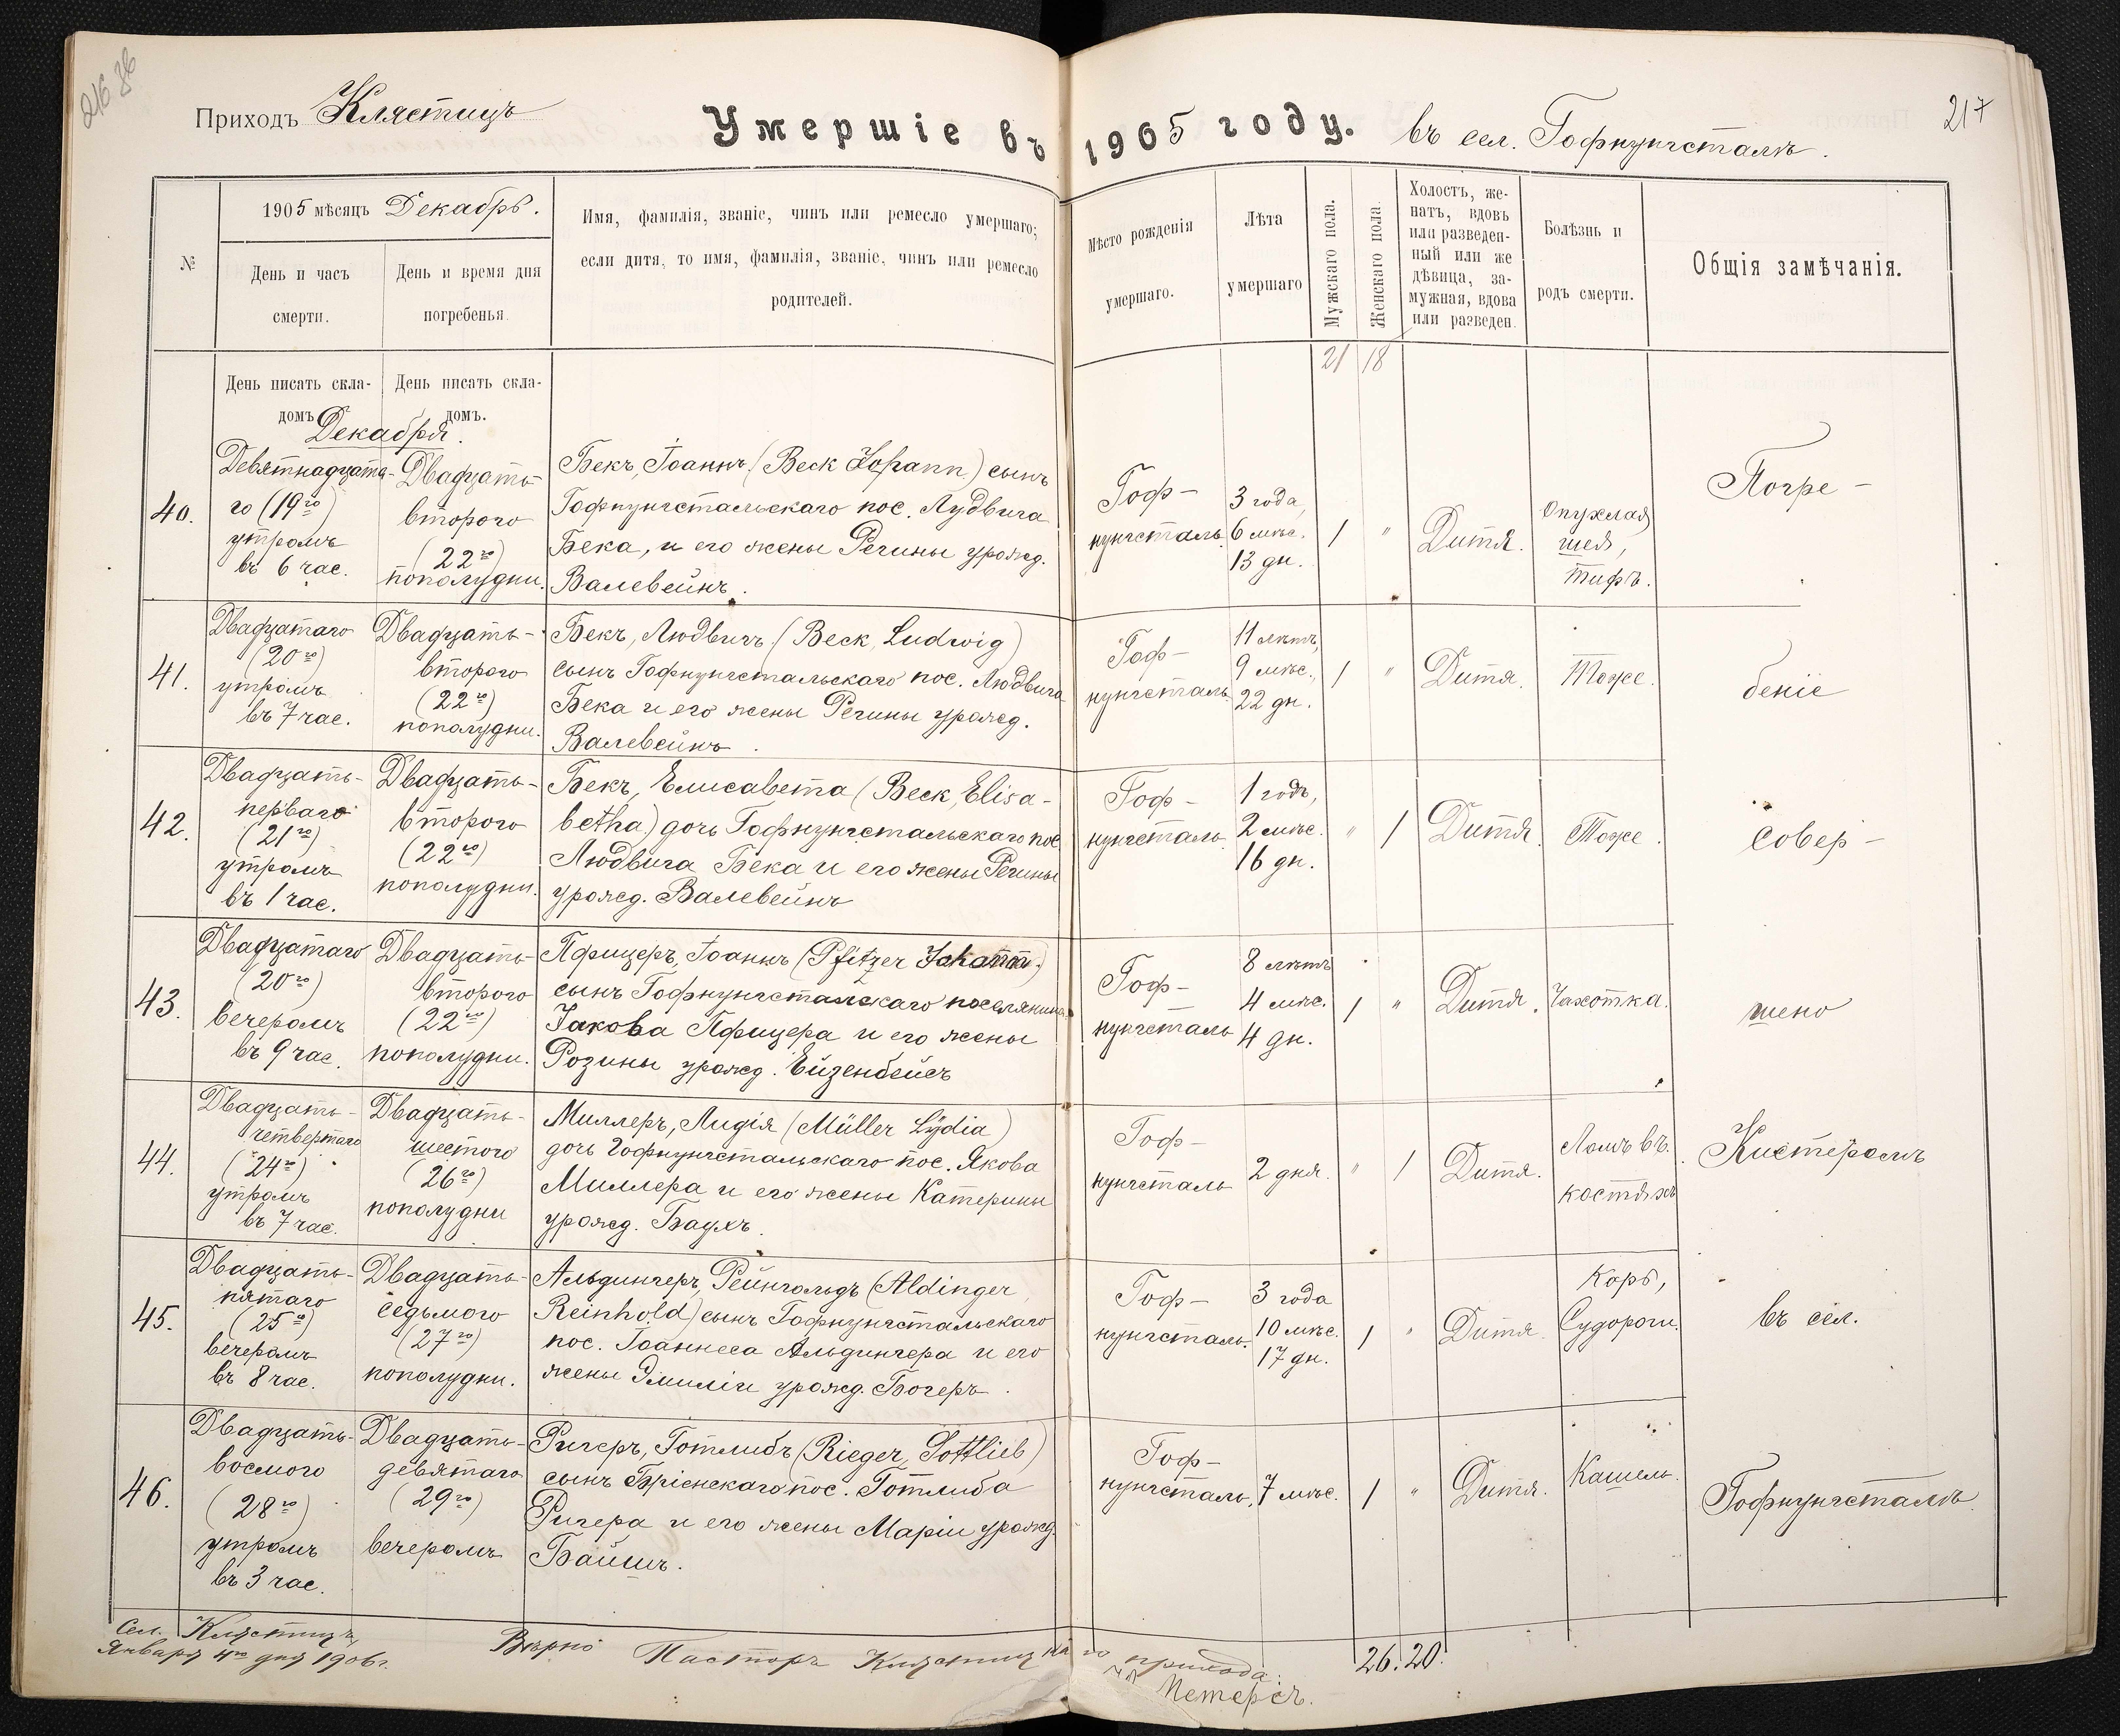 216 об
Приходъ Клястицъ
Умершіе въ 1905 году. въ сел. Гофнунгсталѣ.
217
№
1905 мѣсяцъ Декабрь.
День и часъ
смерти.
День и время дня
погребенья.
Имя, фамилія, званіе, чинъ или ремесло умершаго;
если дитя, то имя, фамилія, званіе, чинъ или ремесло
родителей.
Мѣсто рожденія
умершаго.
Лѣта
умершаго
Мужскаго пола.
Женскаго пола.
Холостъ, же-
натъ, вдовъ
или разведен-
ный или же
дѣвица, за-
мужная, вдова
или разведен.
Болѣзнь и
родъ смерти.
Общія замѣчанія.
21 18
День писать скла-
домъ
День писать скла-
домъ.
Декабря.
40.
Девятнадцата-
го (19го)
утромъ
въ 6 час.
Двадцать
второго
(22го)
пополудни.
Бекъ, Іоаннъ (Beck Johann) сынъ
Гофнунгстальскаго пос. Лудвига
Бека, и его жены Регины урожд.
Валевейнъ.
Гоф-
нунгсталь
3 года,
6 мѣс.
13 дн.
1 "
Дитя.
Опухлая
шея,
тифъ.
Погре-
41.
Двадцатаго
(20го)
утромъ
въ 7 час.
Двадцать-
второго
(22го)
пополудни.
Бекъ, Людвигъ (Beck, Ludwig)
сынъ Гофнунгстальскаго пос. Людвига
Бека и его жены Регины урожд.
Валевейнъ.
Гоф-
нунгсталь.
11 лѣтъ,
9 мѣс.,
22 дн.
1 "
Дитя.
Тоже.
беніе
42.
Двадцать-
перваго
(21го)
утромъ
въ 1 час.
Двадцать-
второго
(22го)
пополудни.
Бекъ, Елисавета (Beck, Elisa-
betha) дочь Гофнунгстальскаго пос.
Людвига Бека и его жены Регины
урожд. Валевейнъ
Гоф-
нунгсталь.
1 годъ,
2 мѣс.
16 дн.
" 1
Дитя.
Тоже.
совер-
43.
Двадцатаго
(20го)
вечеромъ
въ 9 час.
Двадцать-
второго
(22го)
пополудни.
Пфицеръ, Іоаннъ (Pfitzer Johann)
сынъ Гофнунгстальскаго поселянина
Іакова Пфицера и его жены
Розины урожд. Ейзенбейсъ
Гоф-
нунгсталь
8 лѣтъ
4 мѣс.
4 дн.
1 "
Дитя.
Чахотка.
шено
44.
Двадцать-
четвертаго
(24го)
утромъ
въ 7 час.
Двадцать-
шестого
(26го)
пополудни
Миллеръ, Лидія (Müller Lydia)
дочь Гофнунгстальскаго пос. Якова
Миллера и его жены Катерины
урожд. Баухъ.
Гоф-
нунгсталь
2 дня.
" 1
Дитя.
Ломъ въ
костяхъ
Кистеромъ
45.
Двадцать-
пятаго
(25го)
вечеромъ
въ 8 час.
Двадцать-
седьмого
(27го)
пополудни.
Альдингеръ, Рейнгольдъ (Aldinger,
Reinhold) сынъ Гофнунгстальскаго
пос. Іоаннеса Альдингера и его
жены Эмиліи урожд. Богеръ.
Гоф-
нунгсталь.
3 года
10 мѣс.
17 дн.
1 "
Дитя.
Корь,
Судороги.
въ сел.
46.
Двадцать-
восмого
(28го)
утромъ
въ 3 час.
Двадцать-
девятаго
(29го)
вечеромъ
Ригеръ, Готлибъ (Rieger, Gottlieb)
сынъ Бріенскаго пос. Готлиба
Ригера и его жены Маріи урожд.
Байшъ.
Гоф-
нунгсталь.
7 мѣс.
1 "
Дитя.
Кашель.
Гофнунгсталѣ
26. 20.
Сел. Клястицъ,
Января 4го дня 1906 г.
Вѣрно Пасторъ Клястицкаго прихода:
Петерсъ.